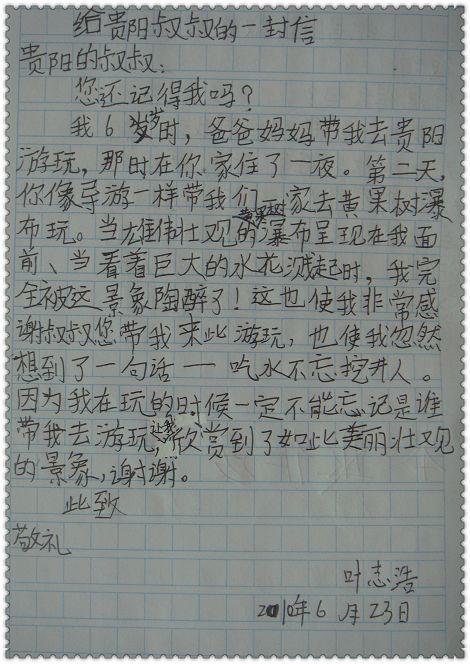 给贵阳叔叔的一封信
贵阳的叔叔:
您还记得我吗?
我6岁时,爸爸妈妈带我去贵阳
游玩,那时在你家住了一夜。第二天,
你像导游一样带我们一家去黄果树瀑
布玩。当雄伟壮观的黄果树瀑布呈现在我面
前、当看着巨大的水花溅起时,我完
全被这景象陶醉了!这也使我非常感
谢叔叔您带我来此游玩,也使我忽然
想到了一句话一吃水不忘挖井人。
因为我在玩的时候一定不能忘记是谁
带我去游玩,让我欣赏到了如此美丽壮观
的景象,谢谢。
此致
敬礼
叶志浩
2010年6月23日